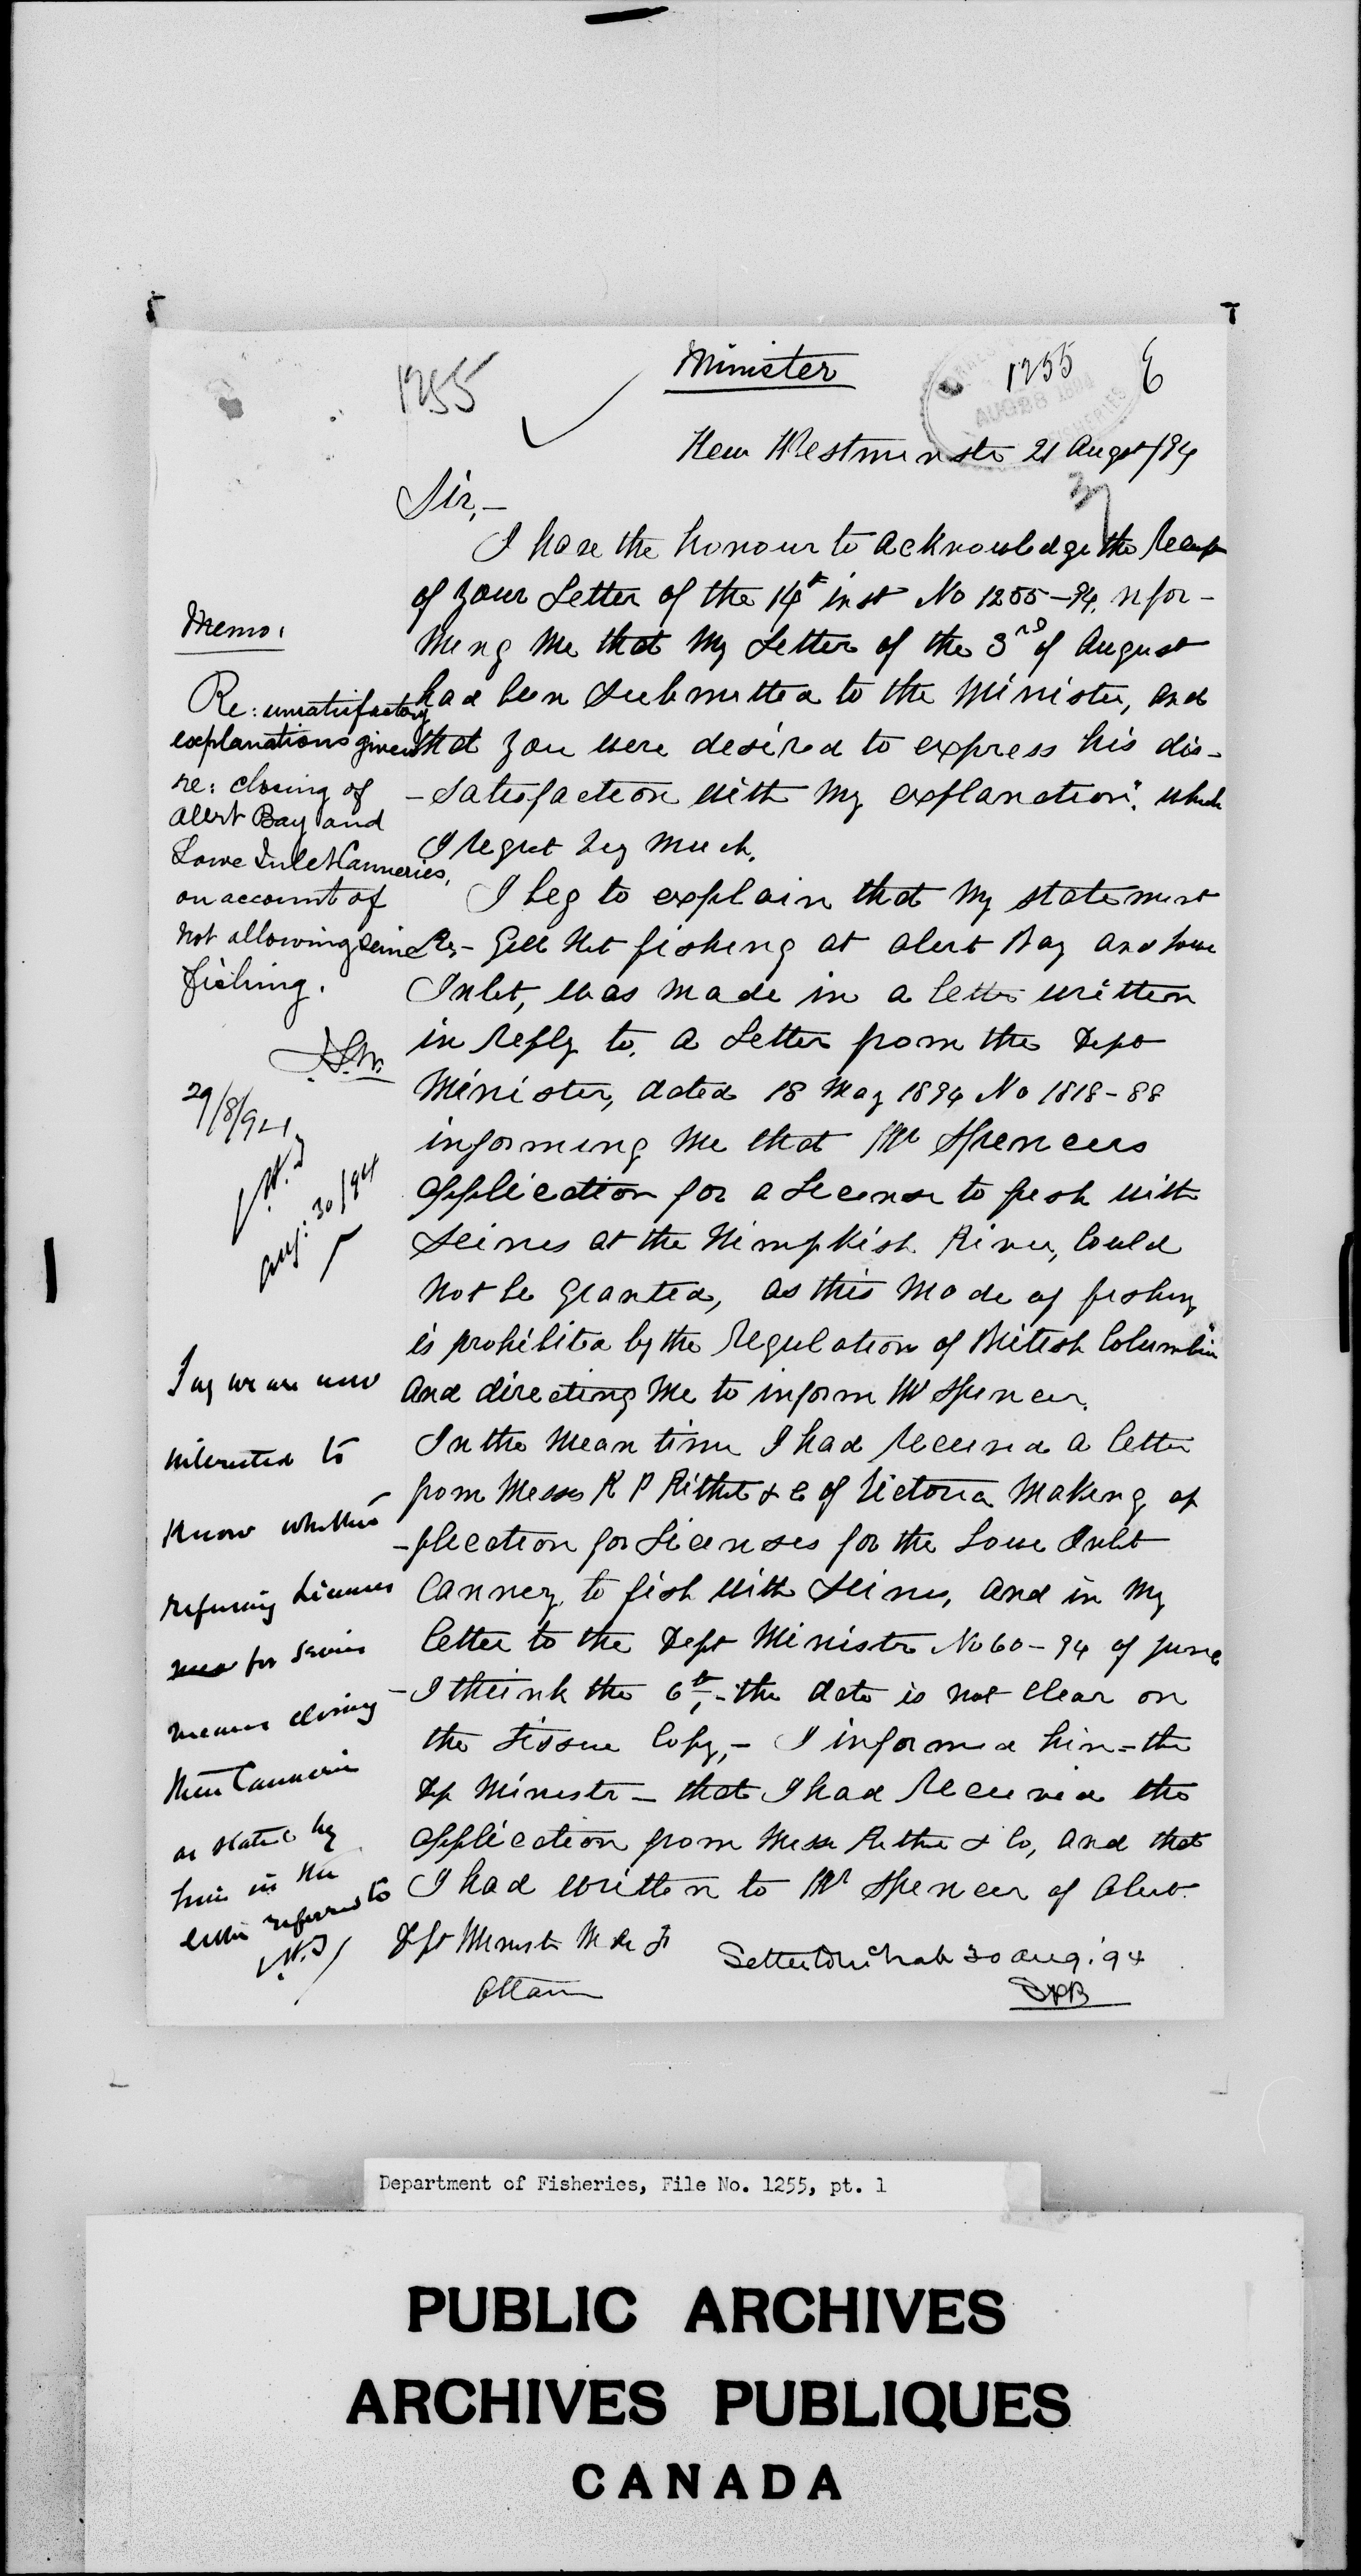 Minister
1255
1255
E
AUG 28 1894
New Westminster 21 August/94
37
Sir,-
I have the honour to acknowledge the Receipt
of your Letter of the 14th inst No 1255-94, infor-
ming me that my Letter of the 3rd of August
had been submitted to the Minister, and
that you were desired to express his dis-
-satisfaction with my explanation", which
I regret very much.
I beg to explain that my statement
Re- Gill Net fishing at Alert Bay and Lowe
Inlet, was made in a letter written
in reply to, a Letter from the Dept
Minister, dated 18 May 1894 No 1818-88
informing me that Mr Spencers
application for a License to fish with
Seines at the Nimpkish River, could
not be granted, as this mode of fishing
is prohibited by the Regulation of British Columbia
and directing me to inform Mr Spencer.
In the mean time I had received a letter
from Messrs R P Rithet & C of Victoria making ap
-plication for Licenses for the Lowe Inlet
Cannery, to fish with Seines, and in my
letter to the Dept Minister No 60-94 of June
-I think the 6th,- the date is not clear on
the tissue Copy,- I informed him - the
Dp Minister - that I had received the
application from Messrs Rithet & Co, and that
I had written to Mr Spencer of Alert
Dpt Minister M & F
Ottawa
Memo.
Re: unsatisfactory
explanations given
re: closing of
Alert Bay and
Lowe Inlet Canneries,
on account of
not allowing seine
fishing.
29/8/94
Aug: 30/94
Say we are now
interested to
know whether
refusing Licenses
for seines
means closing
these Canneries
as stated by
him in the
letter referred to
Letter 30 Aug. '94
Department of Fisheries, File No. 1255, pt. 1
PUBLIC ARCHIVES
ARCHIVES PUBLIQUES
CANADA